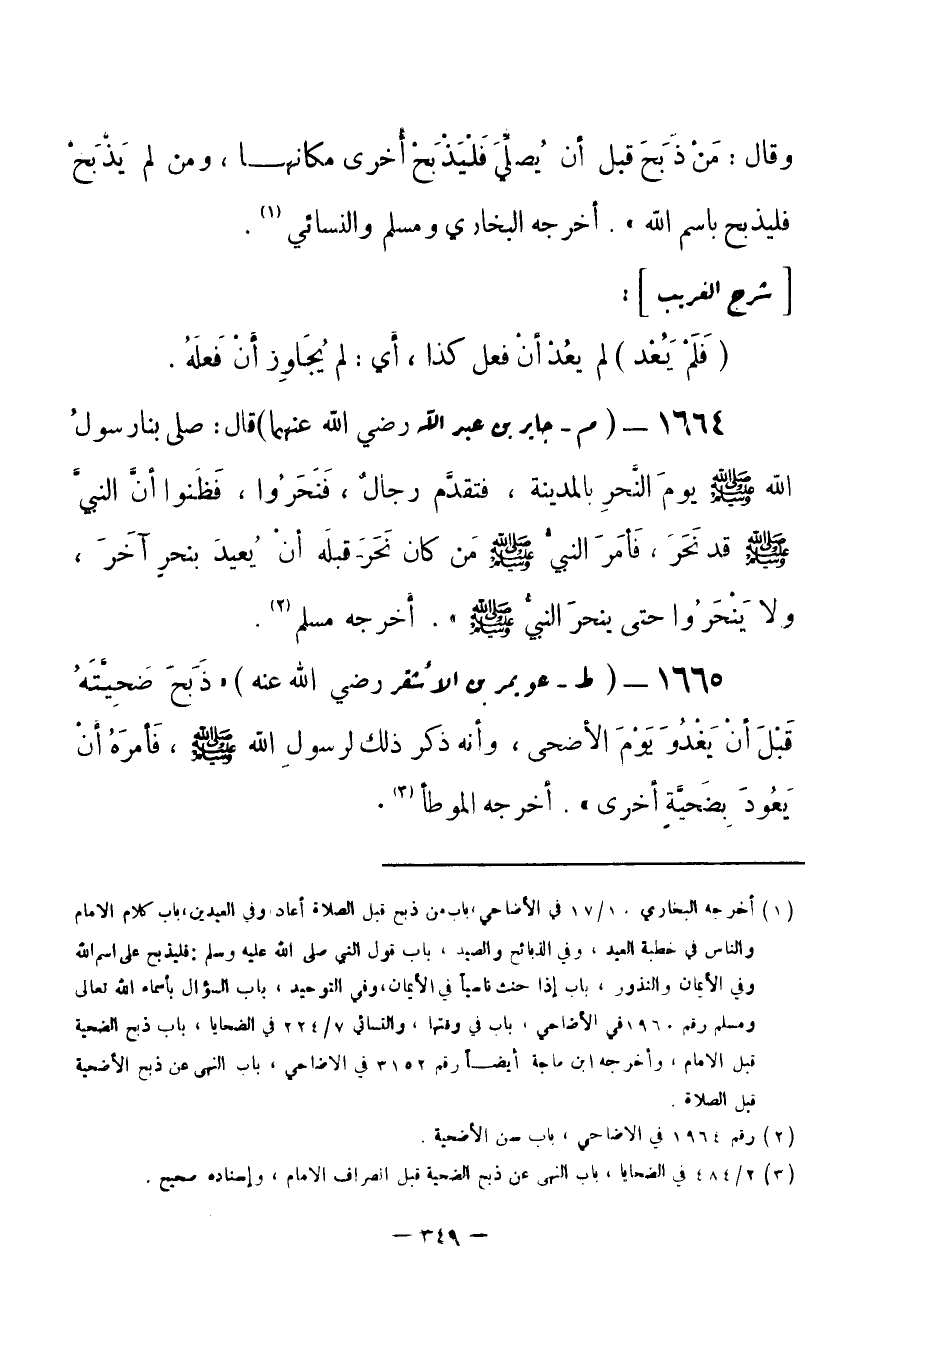 وقال : مَنْ ذَبَحَ قبل أن يُصلِّيَ فَلْيَذْبَحْ أُخرى مكانهـــا ، ومن لم يَذْبَحْ
فليذبح باسم الله » . أخرجه البخاري ومسلم والنسائي (١) .
[ شرح الغريب ] :
( فَلَمْ يَعُدْ ) لم يعُدْ أنْ فعل كذا ، أَي : لم يُجَاوِز أَنْ فَعلَهُ .
١٦٦٤ – ( م - جابر بن عبد الله رضي الله عنهما)قال : صلى بنا رسولُ
الله ﷺ يومَ النَّحرِ بالمدينة ، فتقدَّم رجالٌ ، فَنَحَرُوا ، فَظَنوا أنَّ النبيَّ
ﷺ قد نَحَرَ ، فَأمَرَ النبيُّ ﷺ مَن كان نَحَرَ قبلَه أنْ يُعيدَ بنحرٍ آخَرَ ،
ولا يَنْحَرُوا حتى ينحرَ النبيُّ ﷺ » . أخرجه مسلم (٢) .
١٦٦٥ – ( ط - عويمر بن الأشقر رضي الله عنه ) « ذَبَحَ ضَحِيَّتَهُ
قَبْلَ أنْ يَغْدُوَ يَوْمَ الأضحى ، وأنه ذكر ذلك لرسولِ الله ﷺ ، فَأمرَهُ أنْ
يَعُودَ بِضَحيَّةٍ أخرى » . أخرجه الموطأ (٣) .
(١) أخرجه البخاري ١٧/١٠ في الأضاحي ، باب من ذبح قبل الصلاة أعاد ، وفي العيدين ، باب كلام الامام
والناس في خطبة العيد ، وفي الذبائح والصيد ، باب قول النبي صلى الله عليه وسلم : فليذبح على اسم الله
وفي الأيمان والنذور ، باب إذا حنث ناسياً في الأيمان ، وفي التوحيد ، باب السؤال بأسماء الله تعالى
ومسلم رقم ١٩٦٠ في الأضاحي ، باب في وقتها ، والنسائي ٢٢٤/٧ في الضحايا ، باب ذبح الضحية
قبل الامام ، وأخرجه ابن ماجة أيضــاً رقم ٣١٥٢ في الاضاحي ، باب النهى عن ذبح الأضحية
قبل الصلاة .
(٢) رقم ١٩٦٤ في الاضاحي ، باب سن الأضحية .
(٣) ٤٨٤/٢ في الضحايا ، باب النهى عن ذبح الضحية قبل انصراف الامام ، وإسناده صحيح .
– ٣٤٩ –